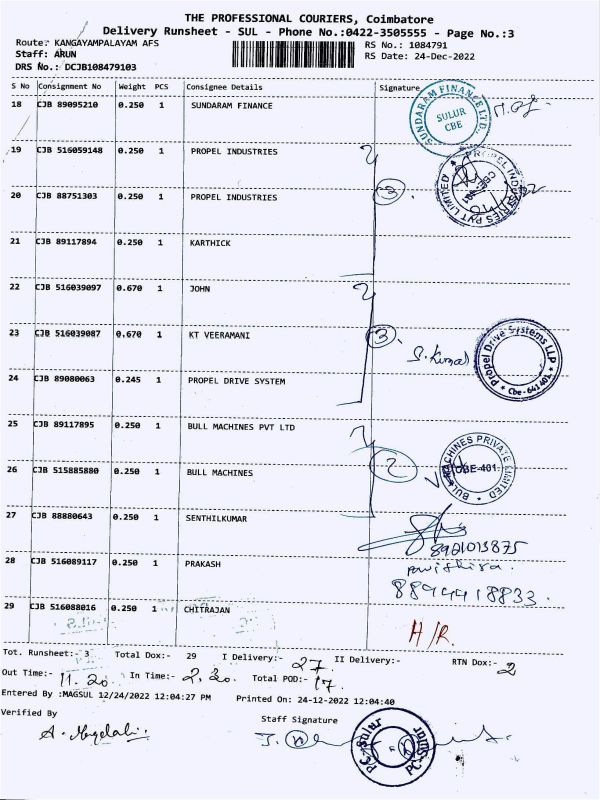 THE PROFESSIONAL COURIERS, Coimbatore
Delivery Runsheet - SUL - Phone No.:0422-3505555 - Page No.:3
Route: KANGAYAMPALAYAM AFS RS No.: 1084791
Staff: ARUN RS Date: 24-Dec-2022
DRS No.: DCJB108479103
S No Consignment No Weight PCS Consignee Details Signature
18 CJB 89095210 0.250 1 SUNDARAM FINANCE
SUNDARAM FINANCE LTD. SULUR CBE
19 CJB 516059148 0.250 1 PROPEL INDUSTRIES
20 CJB 88751303 0.250 1 PROPEL INDUSTRIES
PROPEL INDUSTRIES PVT LIMITED
21 CJB 89117894 0.250 1 KARTHICK
22 CJB 516039097 0.670 1 JOHN
23 CJB 516039087 0.670 1 KT VEERAMANI
3
S. Kumar
Propel Drive Systems LLP Cbe - 641 401.
24 CJB 89080063 0.245 1 PROPEL DRIVE SYSTEM
25 CJB 89117895 0.250 1 BULL MACHINES PVT LTD
26 CJB 515885880 0.250 1 BULL MACHINES
2
BULL MACHINES PRIVATE LIMITED CBE-401.
27 CJB 88880643 0.250 1 SENTHILKUMAR
28 CJB 516089117 0.250 1 PRAKASH
8894418833.
29 CJB 516088016 0.250 1 CHITRAJAN
H/R.
Tot. Runsheet:- 3 Total Dox:- 29 I Delivery:- 27 II Delivery:- RTN Dox:- 2
Out Time:- 11.20 In Time:- 2.20. Total POD:- 17.
Entered By :MAGSUL 12/24/2022 12:04:27 PM Printed On: 24-12-2022 12:04:40
Verified By Staff Signature
PC-Sulur PC-Sulur